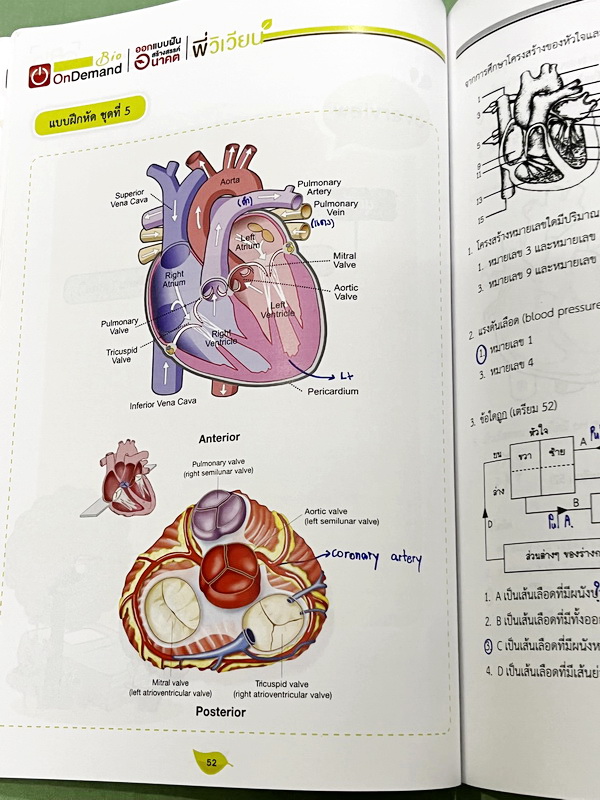 Bio
OnDemand
ออกแบบฝัน
สร้างสรรค์
อนาคต
พี่วิเวียน
แบบฝึกหัด ชุดที่ 5
Superior
Vena Cava
Aorta
(ดำ)
Pulmonary
Artery
Pulmonary
Vein
(แดง)
Left
Atrium
Mitral
Valve
Right
Atrium
Aortic
Valve
Left
Ventricle
Pulmonary
Valve
Right
Ventricle
Tricuspid
Valve
Pericardium
Inferior Vena Cava
Anterior
Pulmonary valve
(right semilunar valve)
Aortic valve
(left semilunar valve)
coronary artery
Mitral valve
(left atrioventricular valve)
Tricuspid valve
(right atrioventricular valve)
Posterior
52
จากการศึกษาโครงสร้างของหัวใจและ
1
3
5
9
11
13
15
1. โครงสร้างหมายเลขใดมีปริมาณ
1. หมายเลข 3 และหมายเลข
3. หมายเลข 9 และหมายเลข
2. แรงดันเลือด (blood pressure
1. หมายเลข 1
3. หมายเลข 4
3. ข้อใดถูก (เตรียม 52)
หัวใจ
บน
ขวา
ซ้าย
A
ล่าง
B
Pul A.
D
ส่วนล่างๆ ของร่างก
1. A เป็นเส้นเลือดที่มีผนัง
2. B เป็นเส้นเลือดที่มีทั้งออ
3. C เป็นเส้นเลือดที่มีผนังห
4. D เป็นเส้นเลือดที่มีเส้นย่